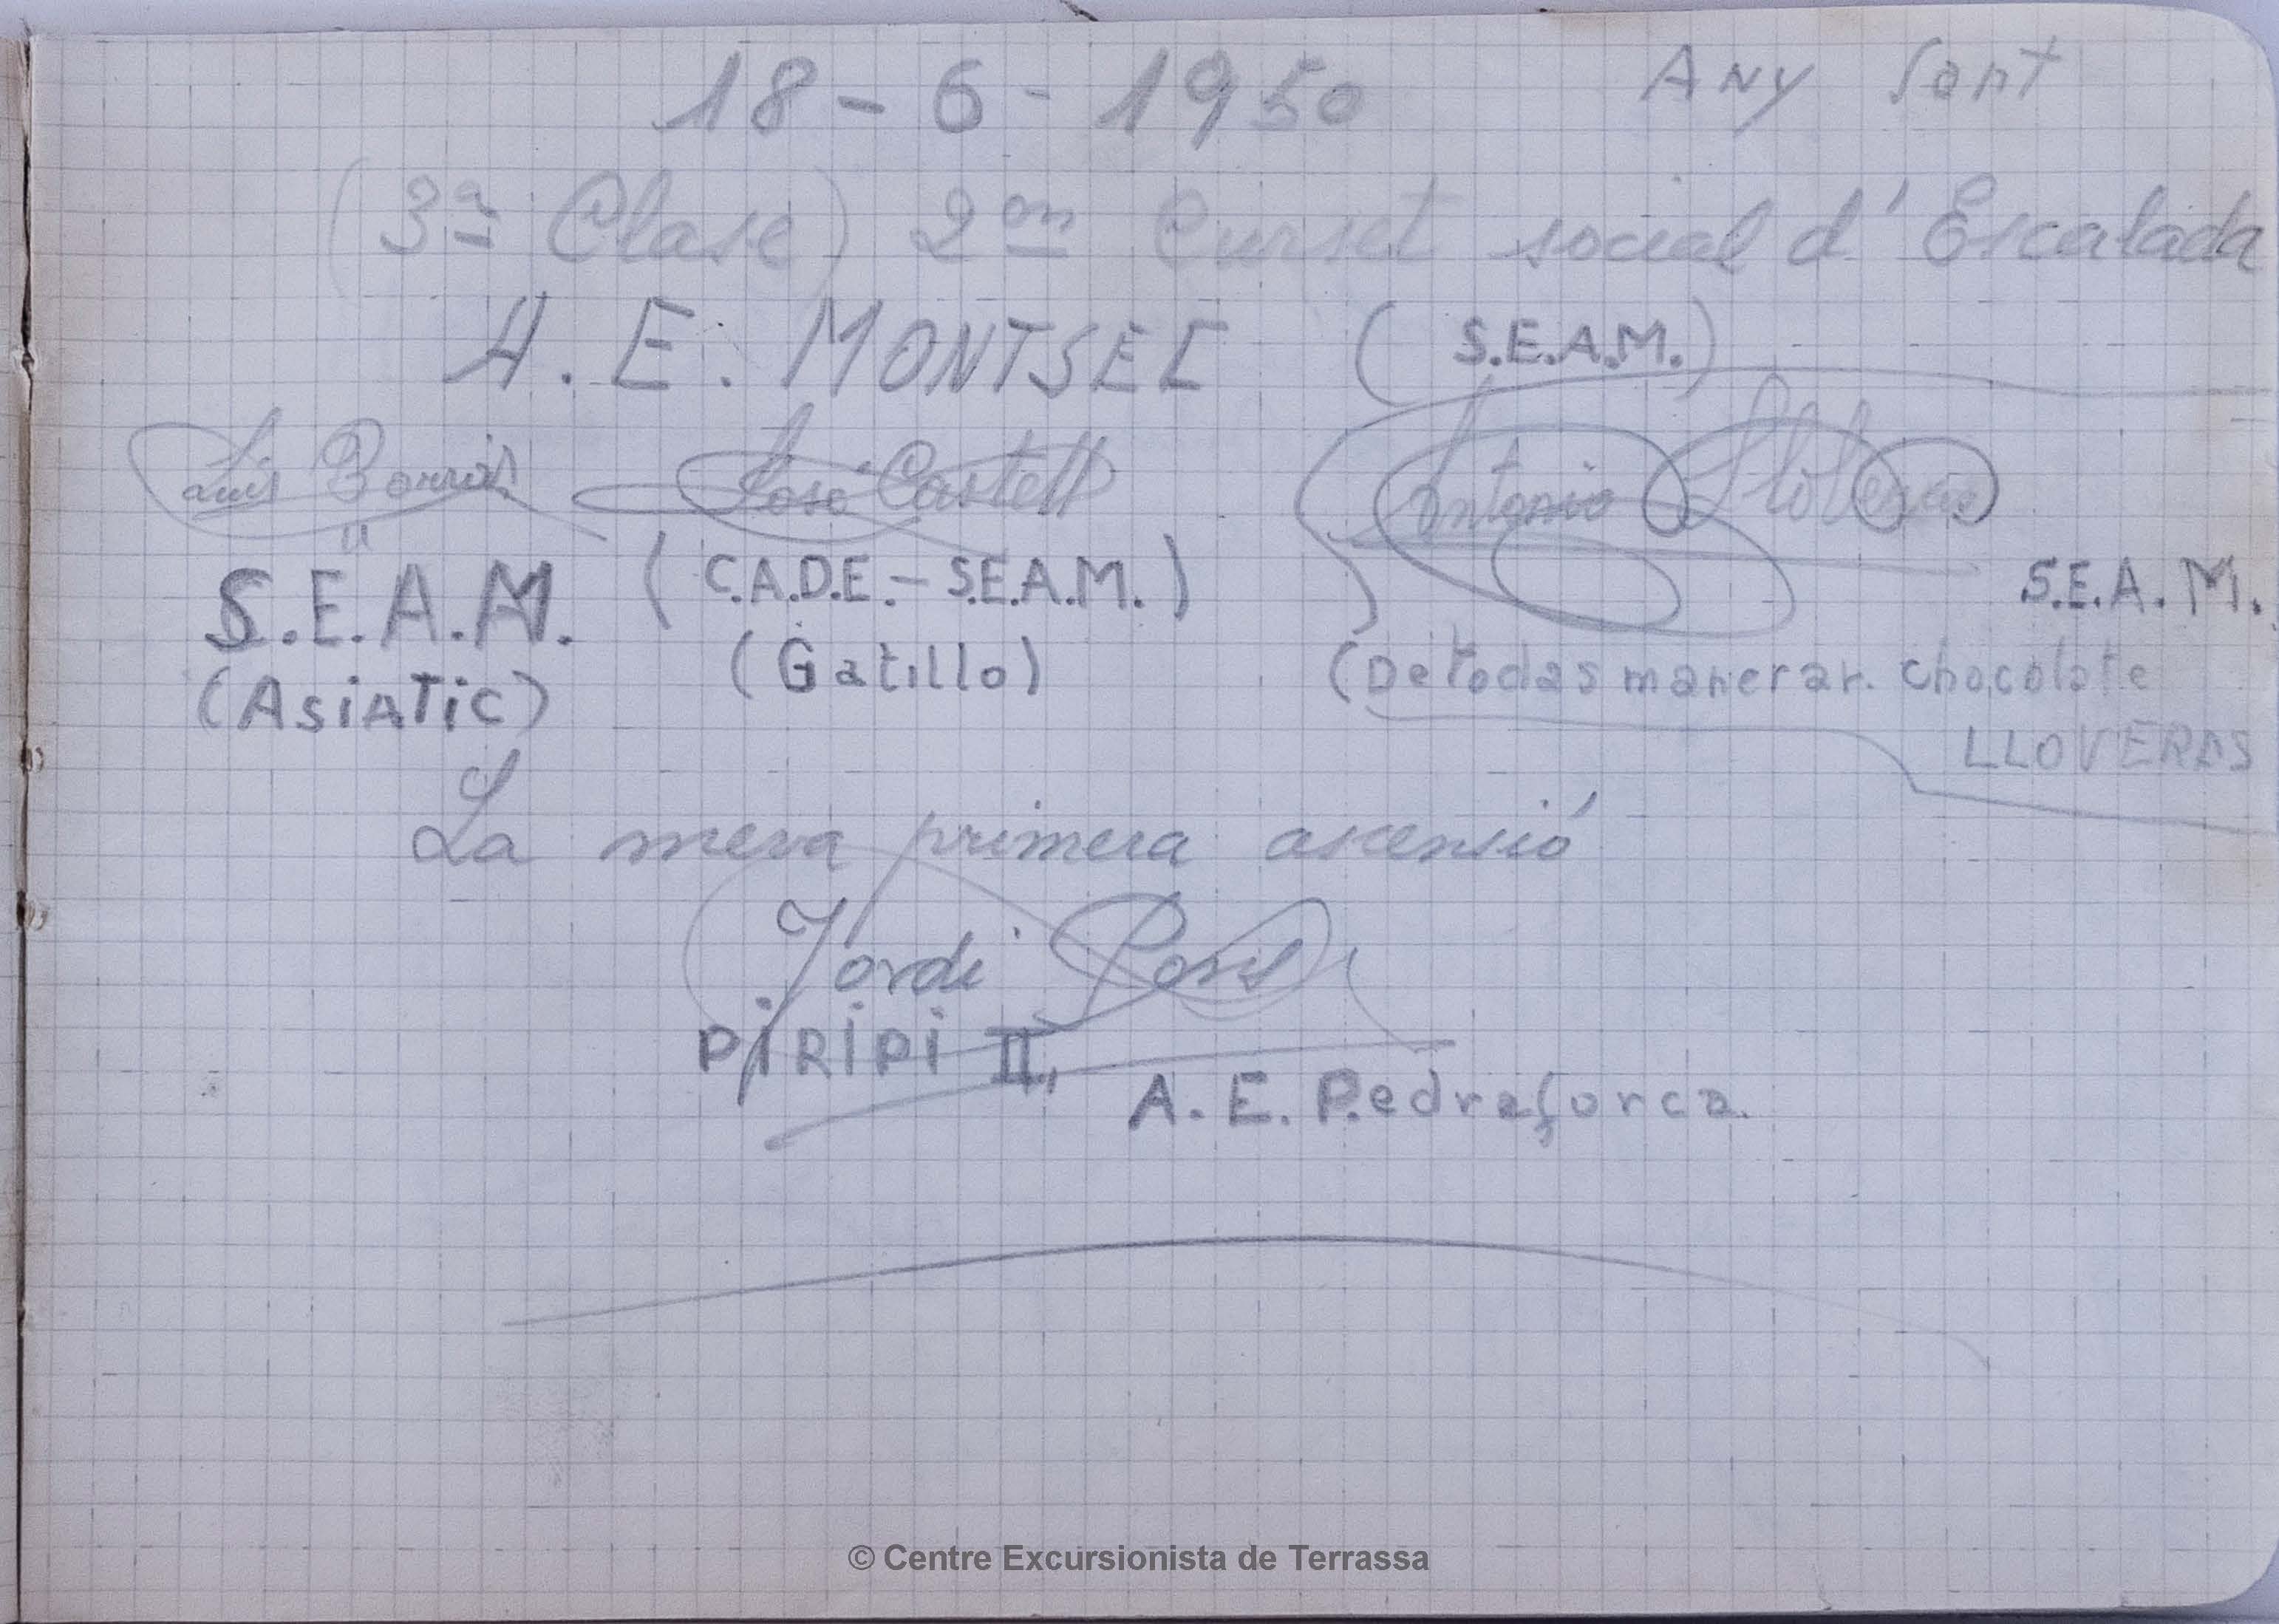 18-6-1950 Any Sant
(3ª Clase) 2on Curset social d'Escalada
A. E. MONTSEC (S.E.A.M.)
Luis José Castell Antonio
S.E.A.M. (C.A.D.E.-S.E.A.M.) S.E.A.M.
(Asiatic) (Gatillo) (De todas maneras. chocolate
LLOVERAS
La meva primera ascensió
Jordi
PiRiPi II,
A. E. Pedraforca.
© Centre Excursionista de Terrassa